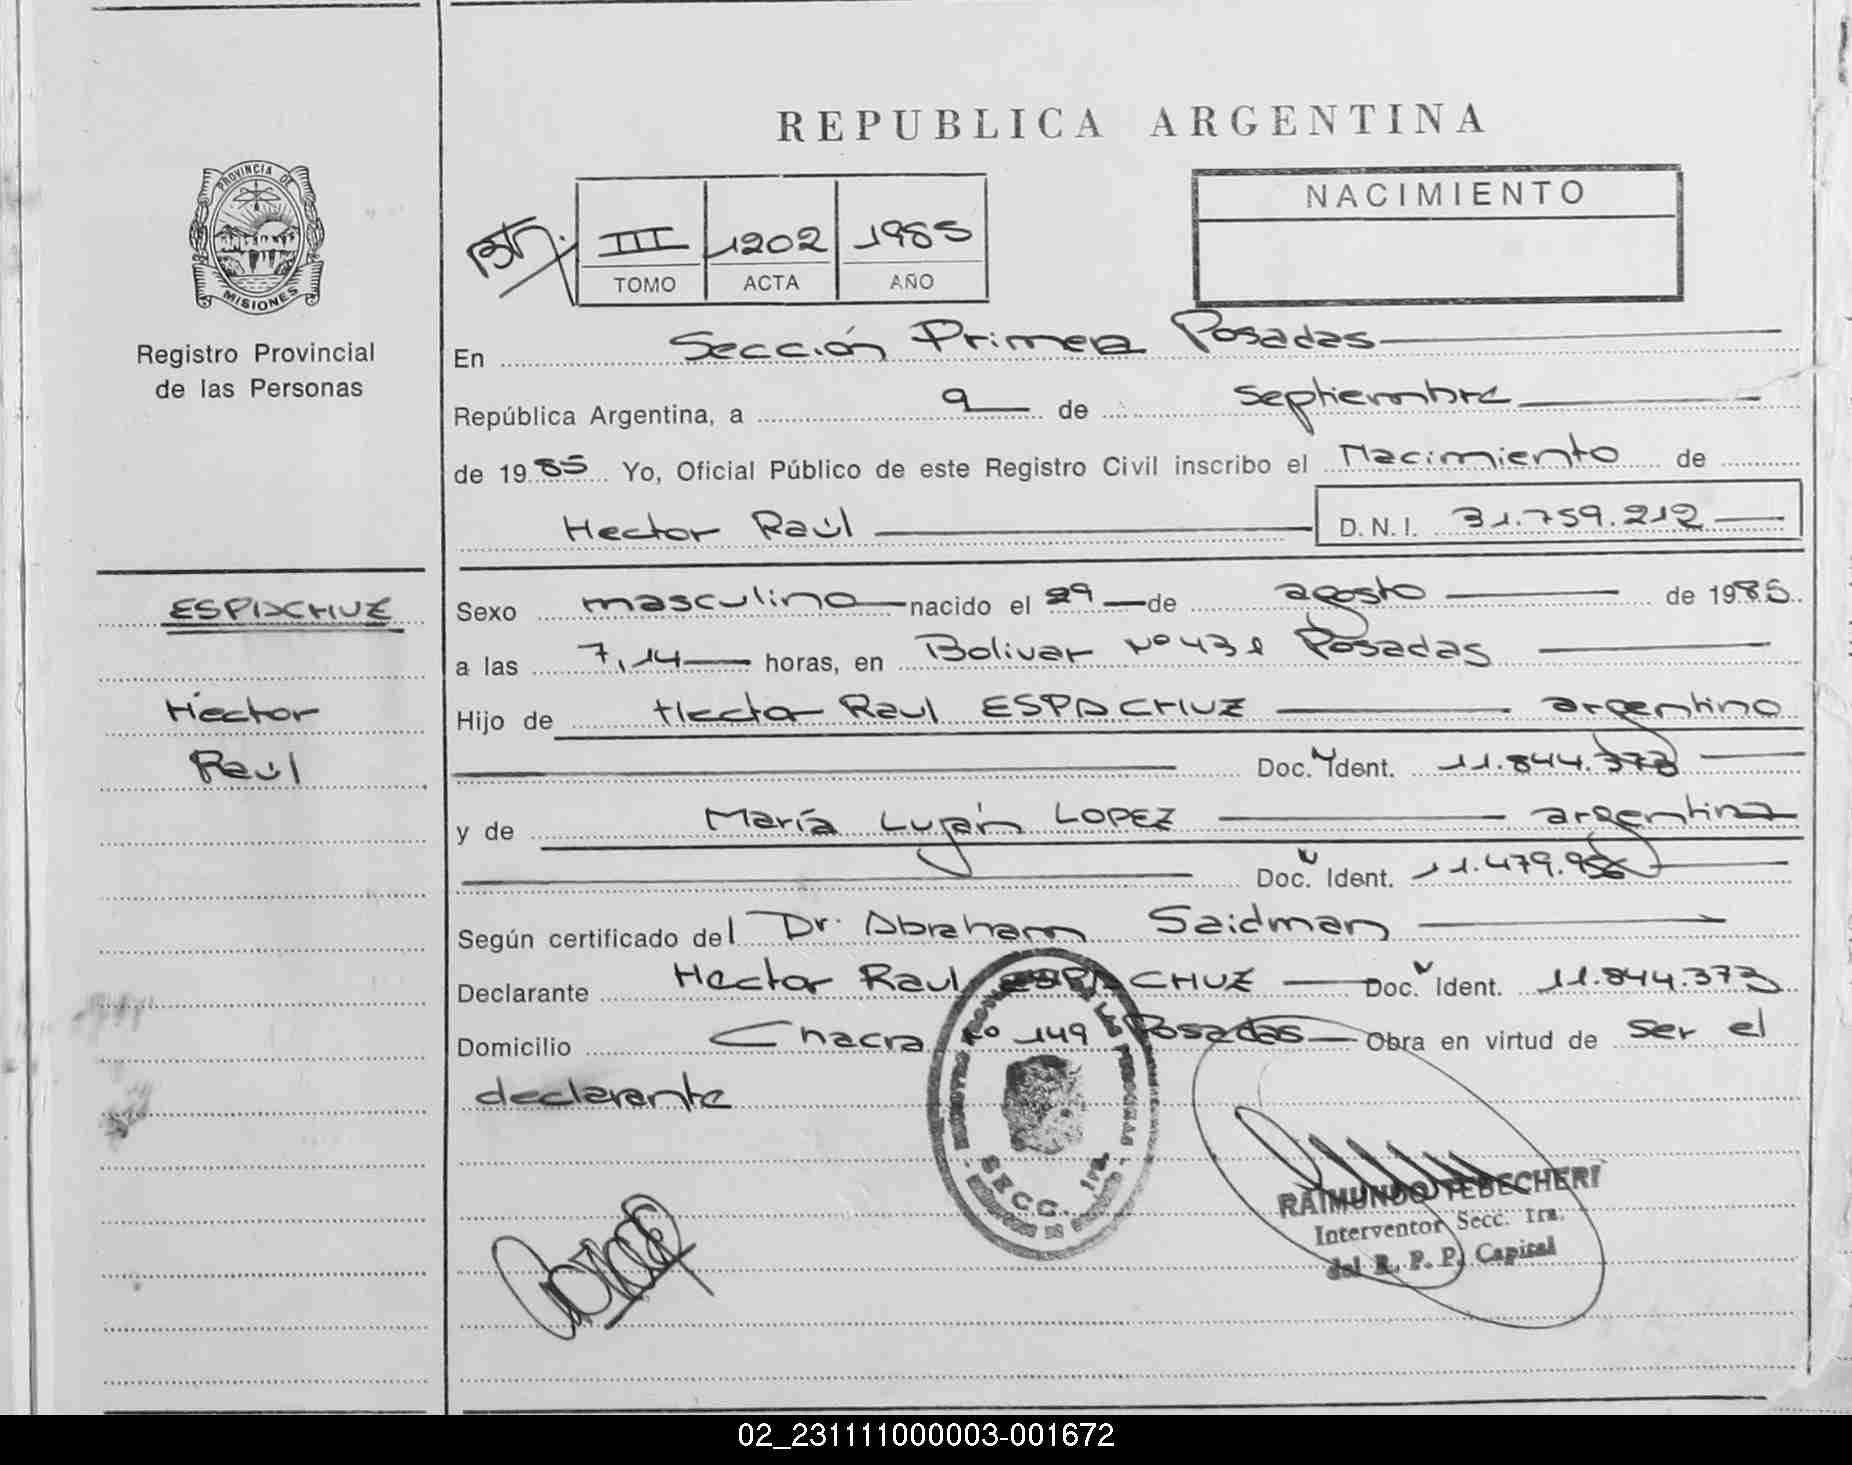 REPUBLICA ARGENTINA
PROVINCIA DE
MISIONES
Registro Provincial
de las Personas
III 1202 1985
TOMO ACTA AÑO
NACIMIENTO
En Sección Primera Posadas
República Argentina, a 9 de septiembre
de 1985 Yo, Oficial Público de este Registro Civil inscribo el Nacimiento de
Hector Raúl D.N.I. 31.759.212
ESPIACHUZ
Hector
Raúl
Sexo masculino nacido el 29 de agosto de 1985
a las 7,14 horas, en Bolivar Nº 431 Posadas
Hijo de Hector Raul ESPIACHUZ argentino
Doc. Ident. 11.844.373
y de María Luján LOPEZ argentina
Doc. Ident. 11.479.956
Según certificado del Dr. Abraham Saidman
Declarante Hector Raul ESPIACHUZ Doc. Ident. 11.844.373
Domicilio Chacra Nº 149 Posadas Obra en virtud de ser el
declarante
SECC. 1ra.
RAIMUNDO TEBECHERI
Interventor Secc. 1ra.
del R. P. P. Capital
02_231111000003-001672